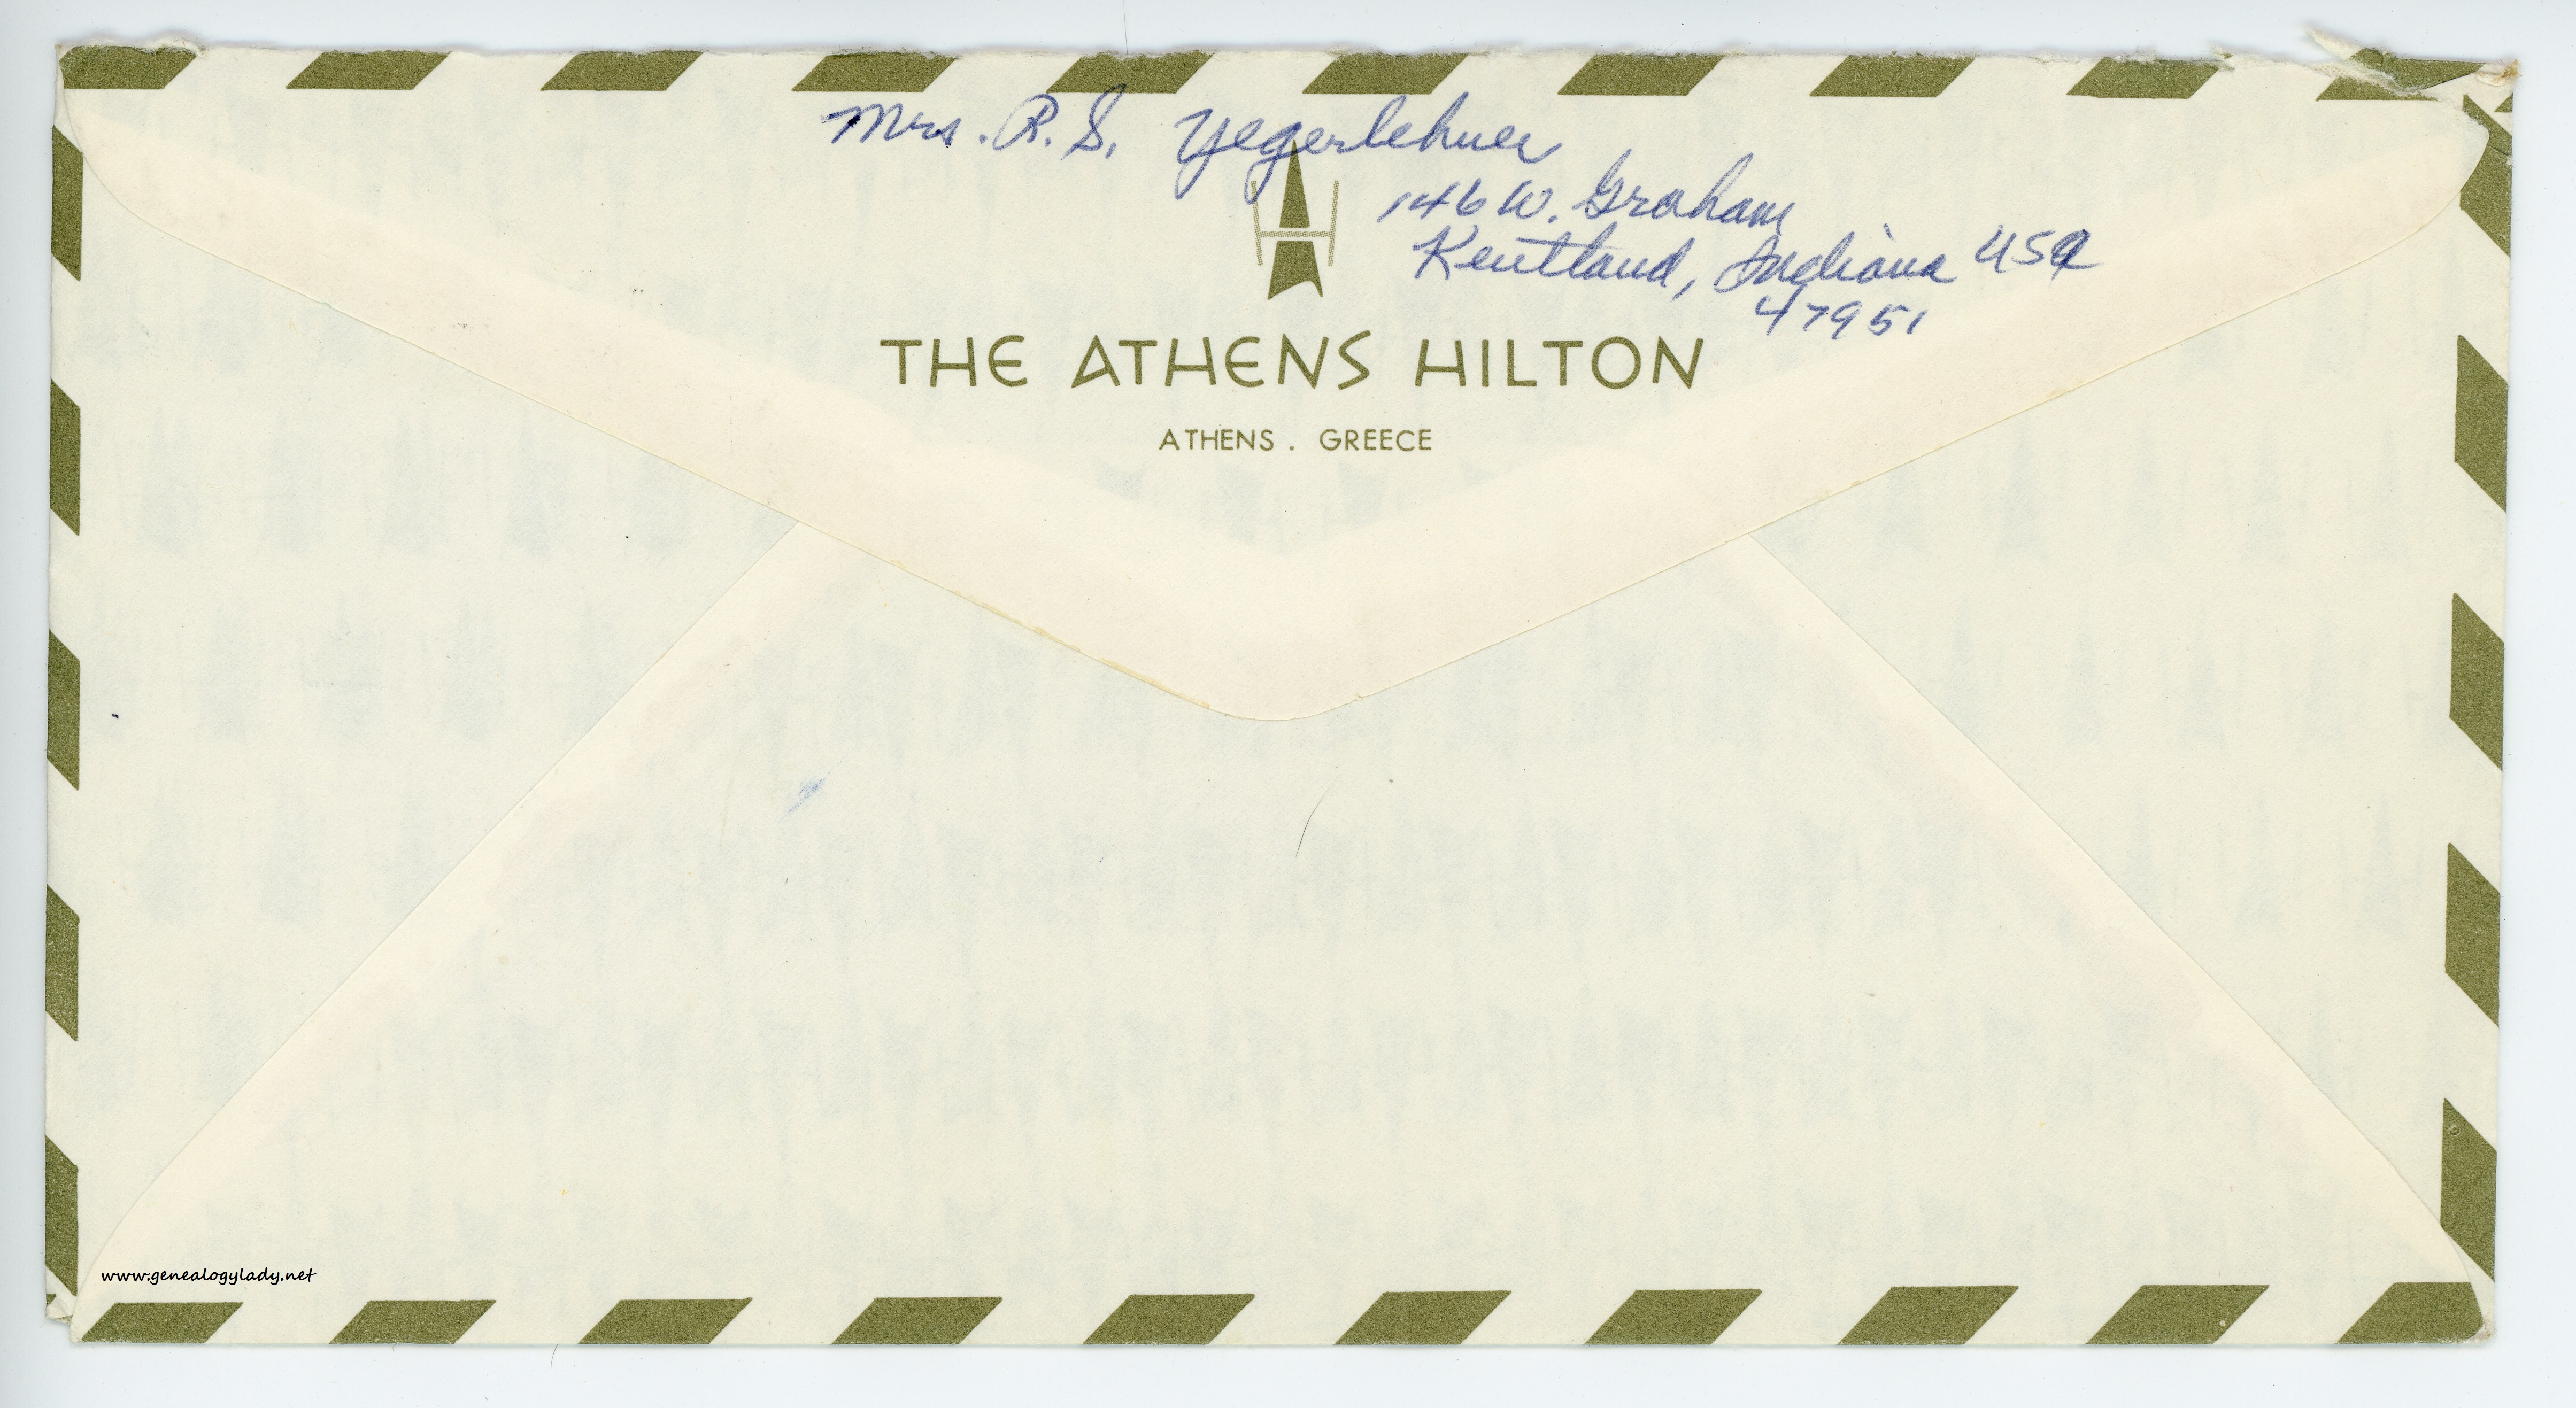 Mrs. R. S. Yegerlehner
146 W. Graham
Kentland, Indiana USA
47951
THE ATHENS HILTON
ATHENS . GREECE
www.genealogylady.net